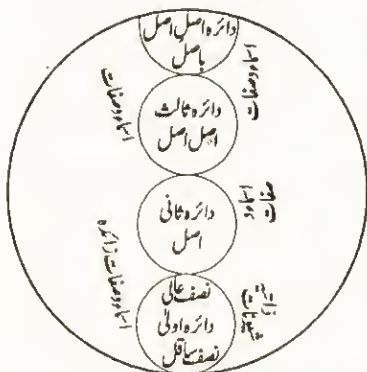 دائرہ اصل اصل
باصل
اسماء وصفات
اسماء وصفات
دائرہ ثالث
اصل اصل
دائرہ ثانی
اصل
صفات
اسماء و
اسماء وصفات زائدہ
نصف عالی
دائرہ اولیٰ
نصف سافل